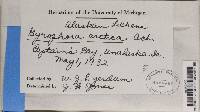 Herbarium of the University of Michigan
Alaskan Lichens
Gyrophora arctica Ach.
Captain's Bay, Unalaska Is.
May 1, 1932
Collected by W. J. Eyerdam
Determined by G. N. Jones